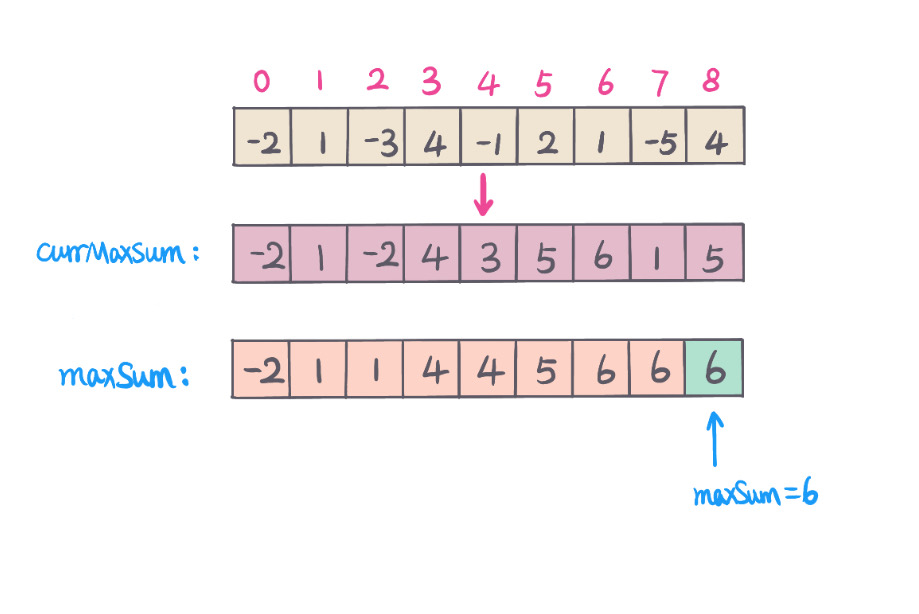 0 1 2 3 4 5 6 7 8
-2 1 -3 4 -1 2 1 -5 4
currMaxSum: -2 1 -2 4 3 5 6 1 5
maxSum: -2 1 1 4 4 5 6 6 6
maxSum=6